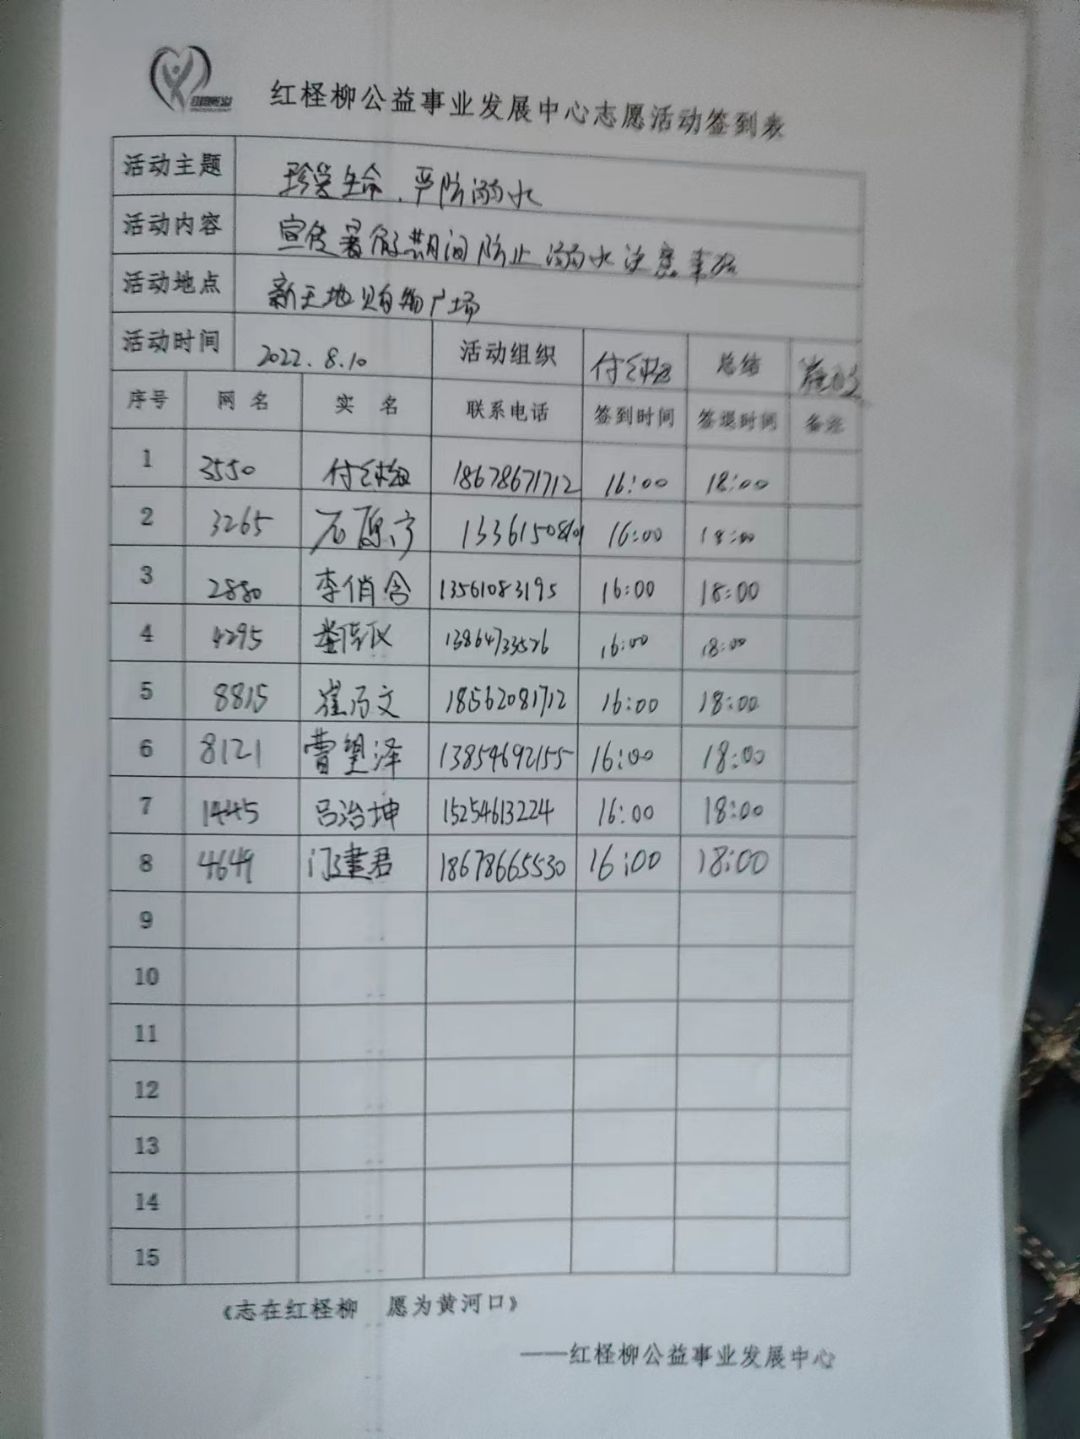 红柽柳公益事业发展中心志愿活动签到表
活动主题 珍爱生命.严防溺水
活动内容 宣传暑假期间防止溺水注意事项
活动地点 新天地购物广场
活动时间 2022.8.10 活动组织 总结
序号 网名 实名 联系电话 签到时间 签退时间 备注
1 3550 18678671712 16:00 18:00
2 3265 16:00 18:00
3 2880 13561083195 16:00 18:00
4 4295 13864733526 16:00 18:00
5 8815 崔乃文 18562081712 16:00 18:00
6 8121 曹望泽 13854692155 16:00 18:00
7 1445 吕治坤 15254613224 16:00 18:00
8 4649 门建君 18678665530 16:00 18:00
9
10
11
12
13
14
15
《志在红柽柳 愿为黄河口》
——红柽柳公益事业发展中心